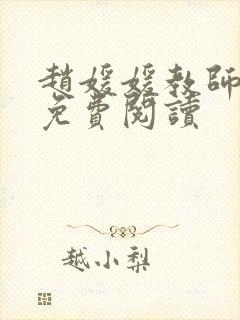 趙媛媛教師
免費閱讀
越小梨